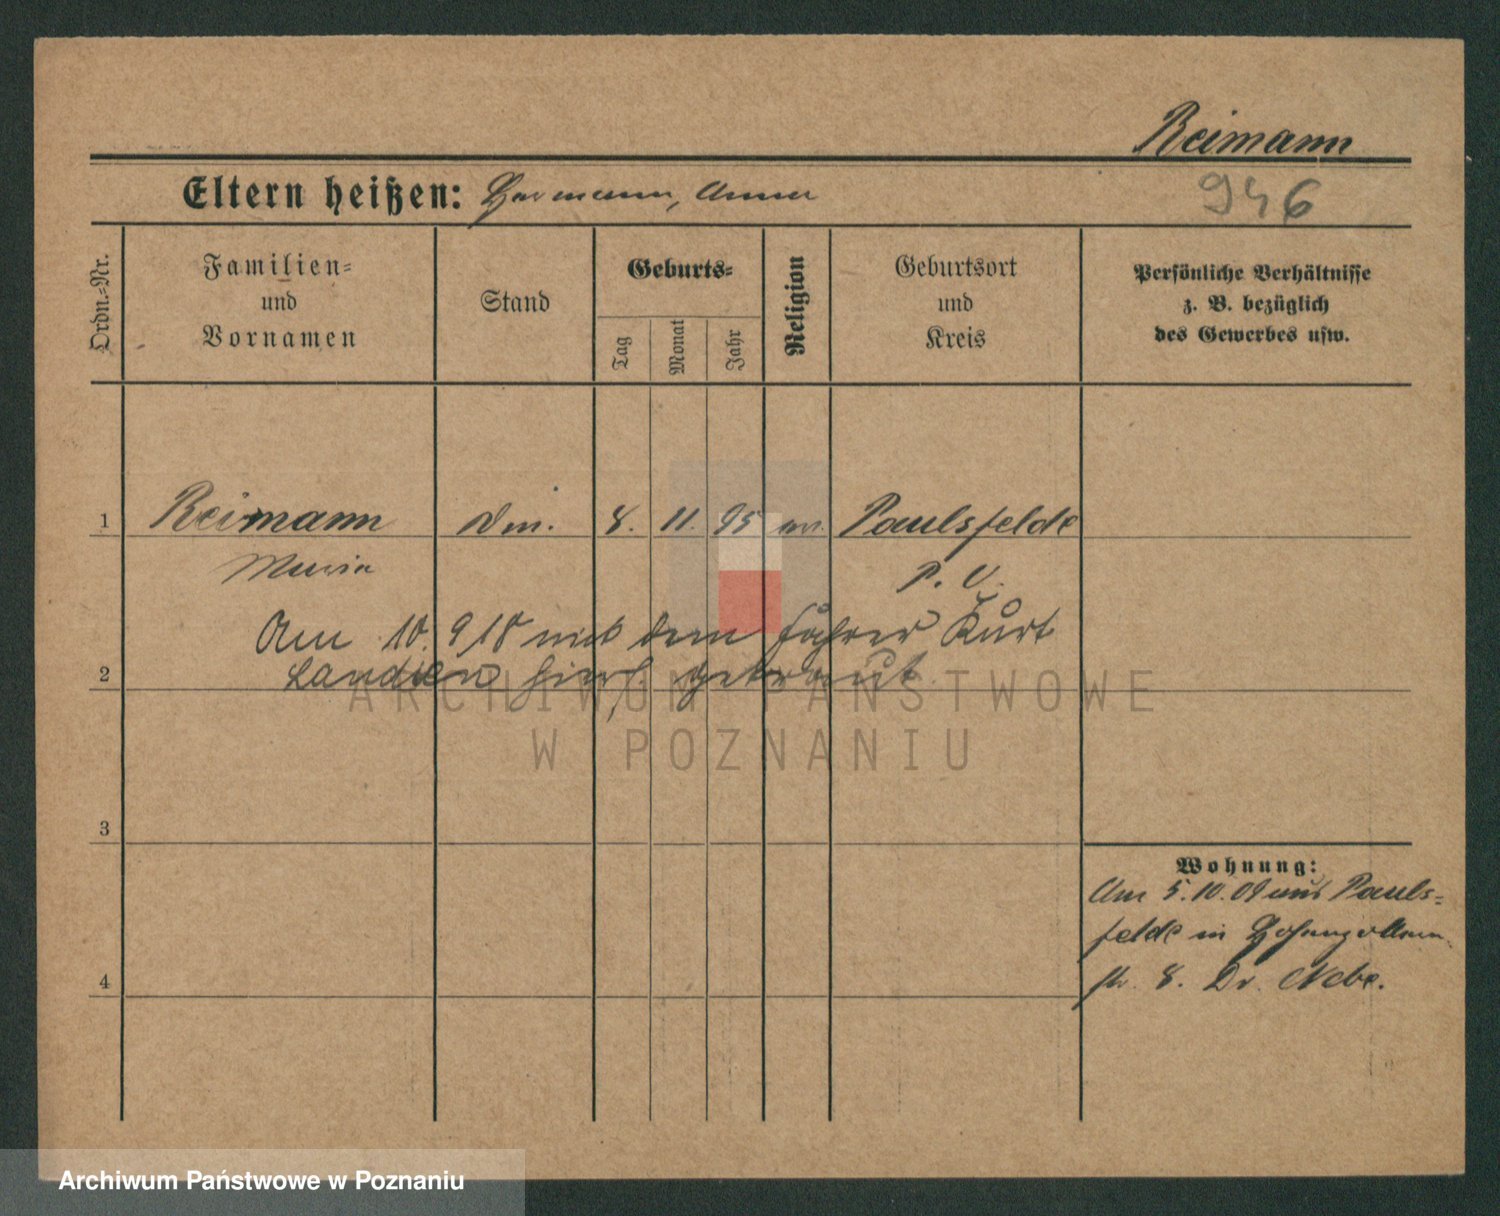 Reimann
Eltern heißen: Hermann, Anna
946
Ordn.-Nr.
Familien-
und
Vornamen
Stand
Geburts-
Tag
Monat
Jahr
Religion
Geburtsort
und
Kreis
Persönliche Verhältnisse
z. B. bezüglich
des Gewerbes usw.
1 Reimann 8. 11. 95 Paulsfelde
Maria P. V.
Am 10. 9 18 mit dem Fahrer Kurt
2 hier getraut
ARCHIWUM PAŃSTWOWE
W POZNANIU
3
Wohnung:
Am 5. 10. 09 aus Pauls-
felde in Hohenzollern
4 str. 8. Dr. Nebe.
Archiwum Państwowe w Poznaniu